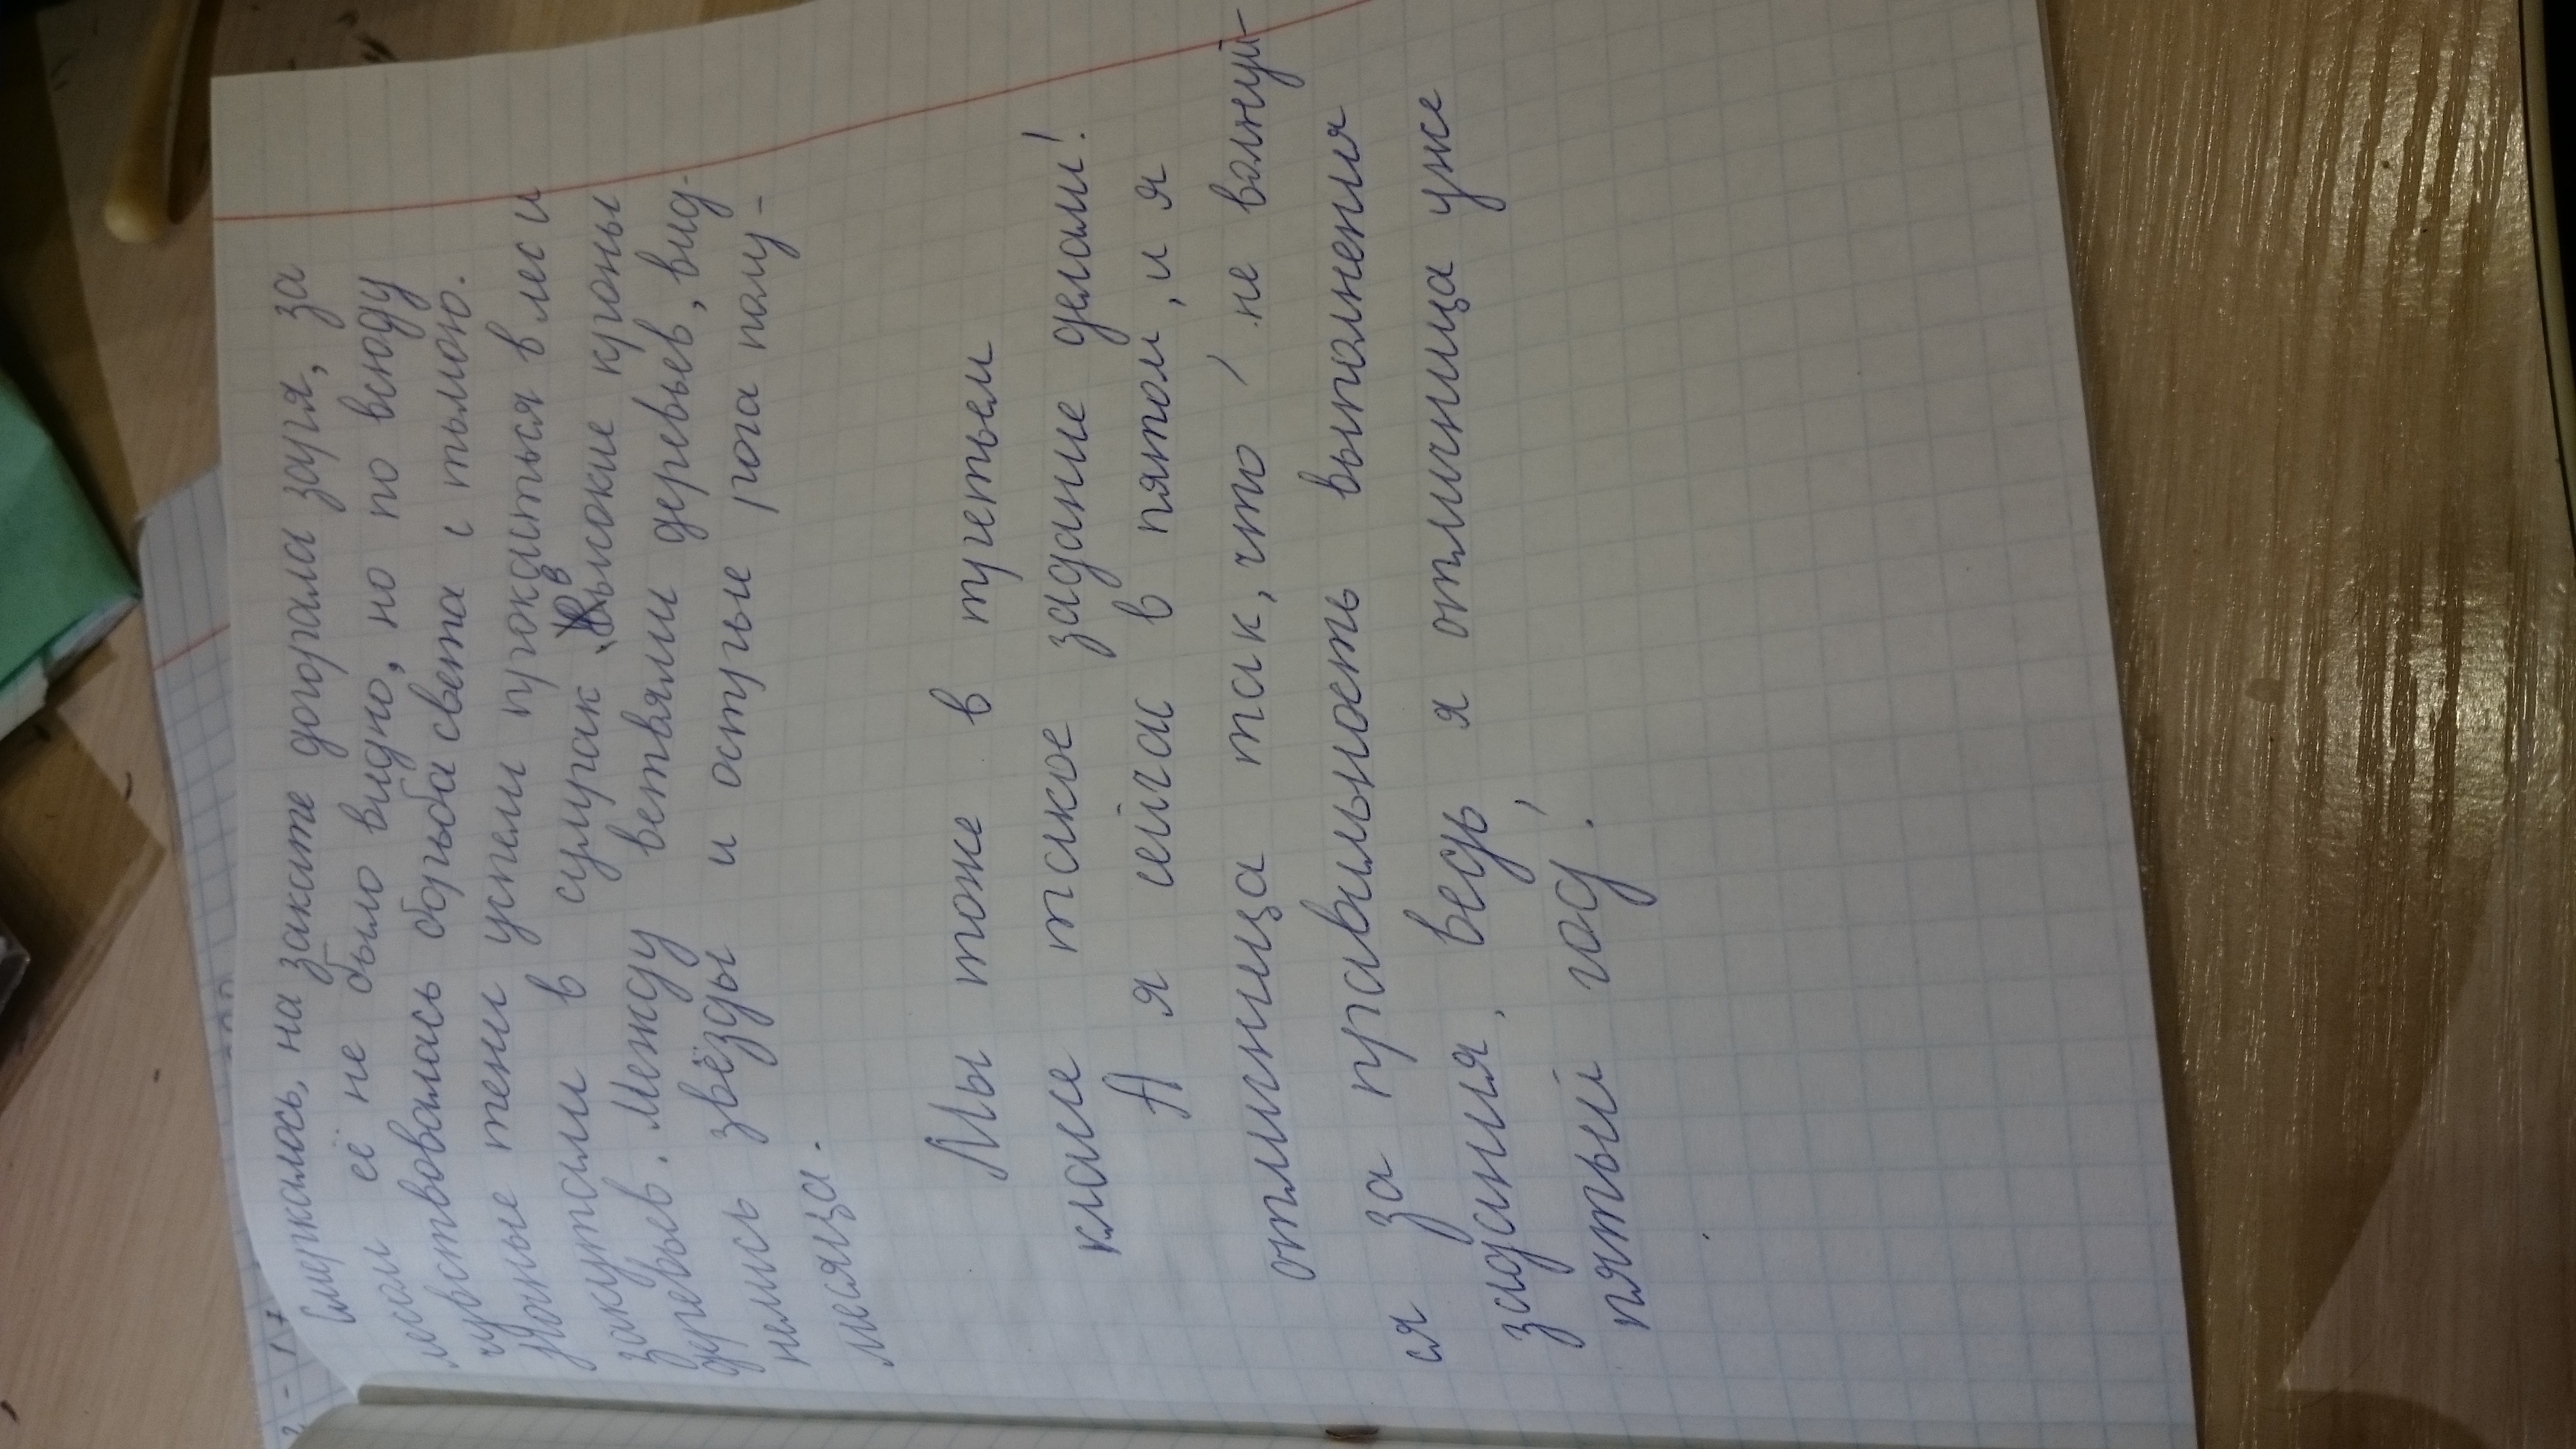 Смеркалось, на закате догорала заря, за
лесом её не было видно, но по всюду
чувствовалась борьба света с тьмою.
Ночные тени успели прокасться в лес и
закутали в сумрак высокие кроны
деревьев. Между ветвями деревьев, вид-
нелись звёзды и острые рога полу-
месяца.
Мы тоже в третьем
класе такое задание делали!
А я сейчас в пятом, и я
отличница так, что, не волнуй-
ся за правильность выполнения
задания, ведь я отличница уже
пятый год!